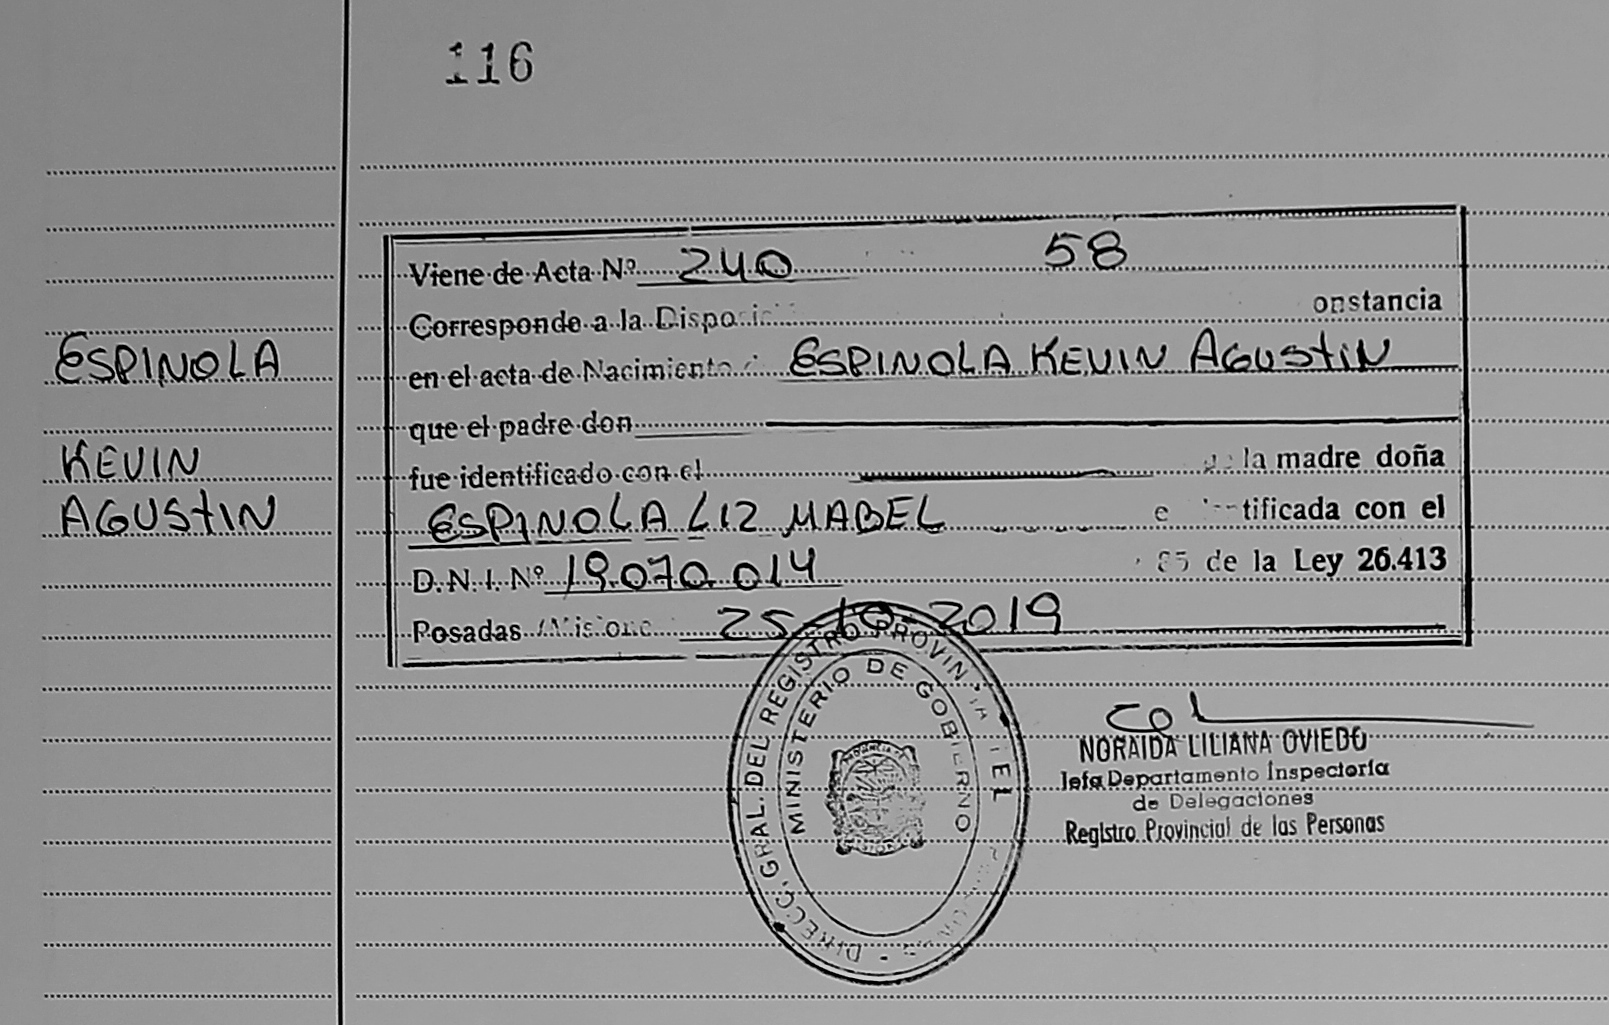 116
ESPINOLA
KEVIN
AGUSTIN
Viene de Acta Nº 240 58
Corresponde a la onstancia
en el acta de Nacimiento ESPINOLA KEVIN AGUSTIN
que el padre don
fue identificado con el la madre doña
ESPINOLA LIZ MABEL tificada con el
D.N.I. Nº 19.070.014 85 de la Ley 26.413
Posadas 25-10-2019
DIRECC. GRAL. DEL REGISTRO
MINISTERIO DE GOBIERNO
NORAIDA LILIANA OVIEDO
Jefa Departamento Inspectoría
de Delegaciones
Registro Provincial de las Personas